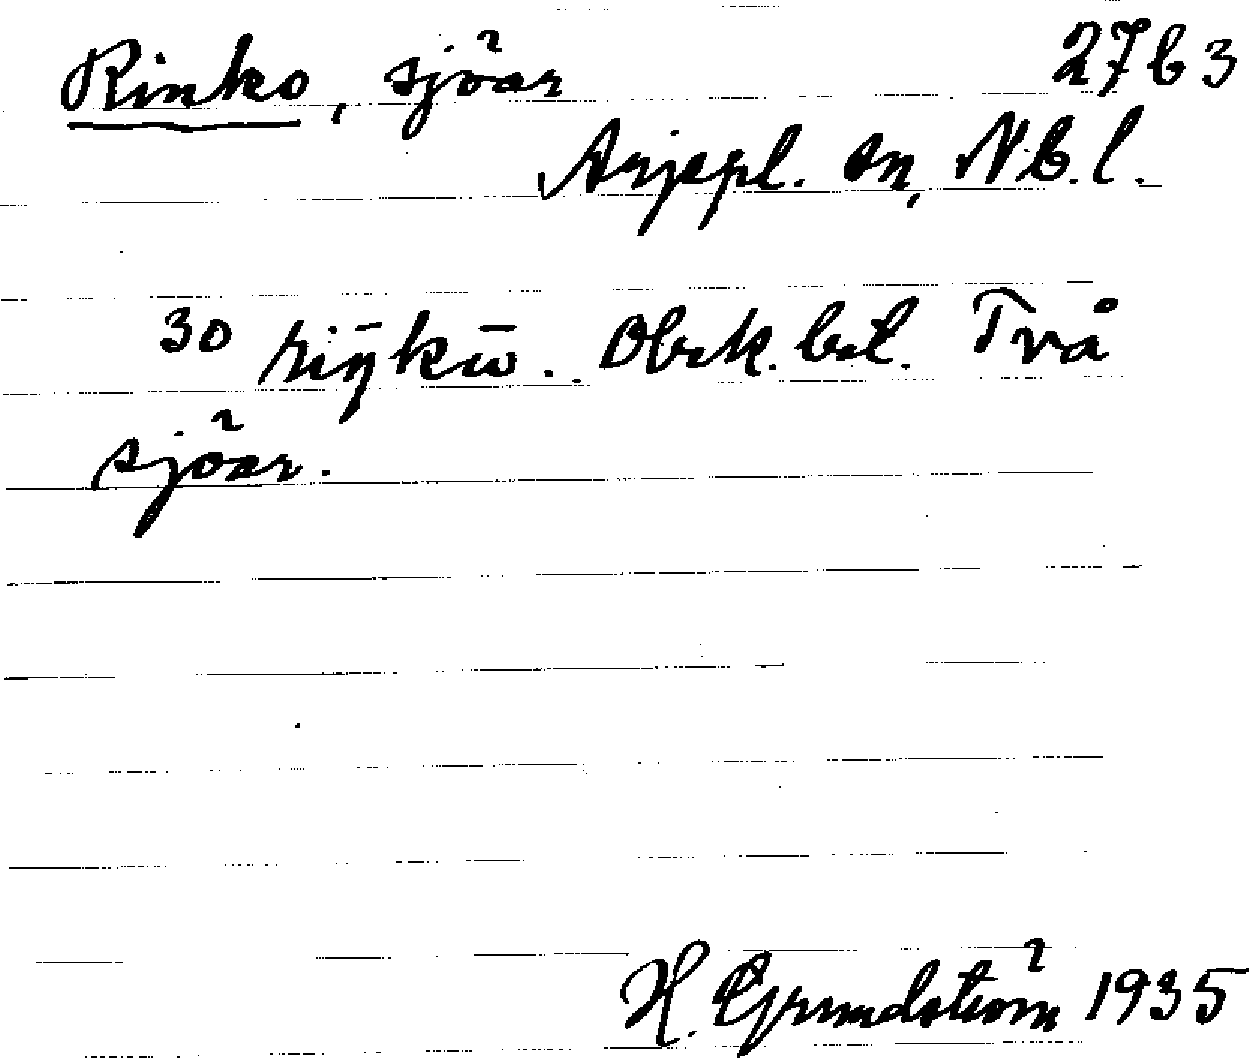 Rinko, sjöar 27b3
Arjepl. sn, Nb. l.
30 riŋ̄kū. Obek. bet. Två
sjöar.
H. Grundström 1935